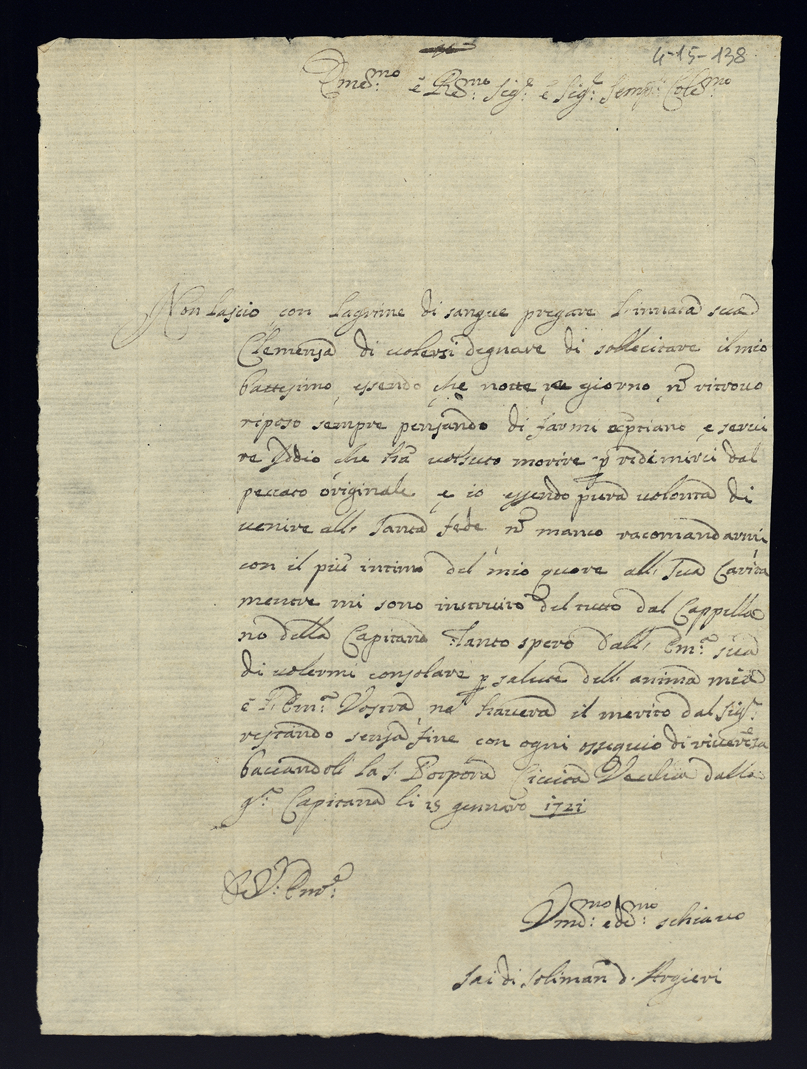 4-15-138
Em.mo e R.mo Sig.r e Sig.r Semp. Col.mo
Non lascio con lagrime di sangue pregare l'innata sua
Clemensa di volersi degnare di sollecitare il mio
battesimo, essendo che notte e giorno nō ritrovo
riposo sempre pensando di farmi xptiano e servi
re Iddio che hà voluto morire p redimirci dal
peccato originale e io essendo pura volontà di
venire all, Santa fede nō manco racomandarmi
con il più intimo del mio quore all, Sua Carità
mentre mi sono instruito del tutto dal Cappella
no della Capitana Tanto spero dall, Em.a sua
di volermi consolare p salute dell, anima mia
e l, Em.a Vostra ne haverà il merito dal Sig.r
restando sensa fine con ogni ossequio di riverensa
baciandoli la S. Porpora Civita Vecchia dalla
g.a Capitana li 15 gennaro 1721
Di V. Em.a
Um.mo e de.mo schiavo
Sai di Soliman d. Argieri